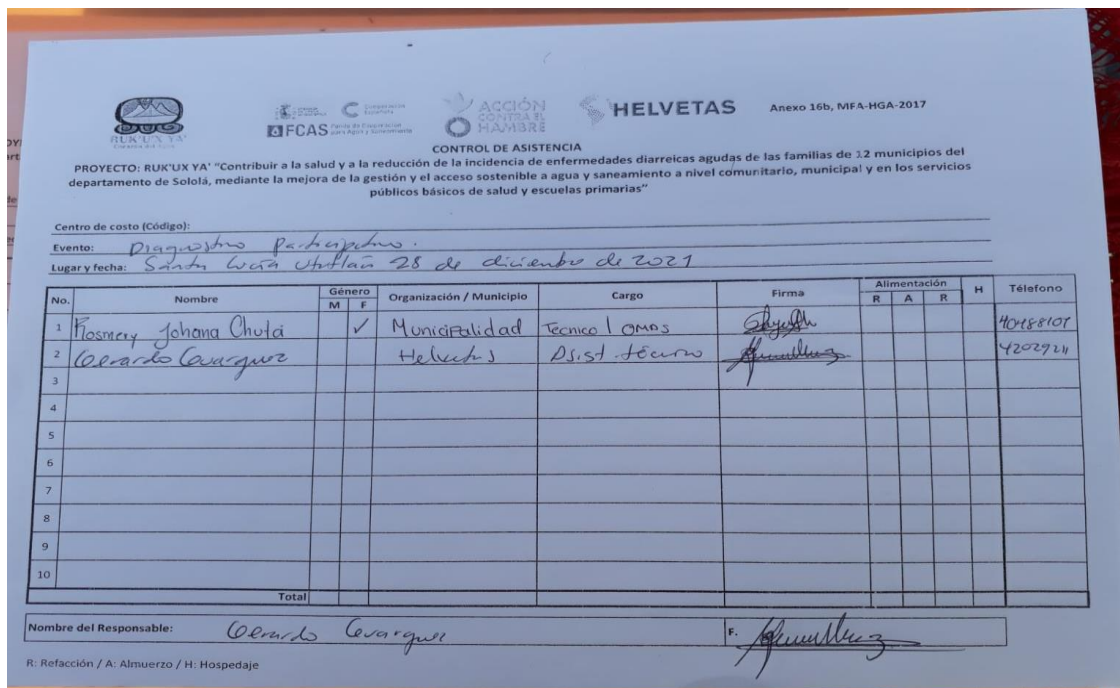 RUK'U'X YA'
FCAS Fondo de Cooperación para Agua y Saneamiento
Cooperación Española
ACCIÓN CONTRA EL HAMBRE
HELVETAS
Anexo 16b, MFA-HGA-2017
CONTROL DE ASISTENCIA
PROYECTO: RUK'UX YA' "Contribuir a la salud y a la reducción de la incidencia de enfermedades diarreicas agudas de las familias de 12 municipios del
departamento de Sololá, mediante la mejora de la gestión y el acceso sostenible a agua y saneamiento a nivel comunitario, municipal y en los servicios
públicos básicos de salud y escuelas primarias"
Centro de costo (Código):
Evento: Diagnostico Participativo.
Lugar y fecha: Santa Lucía Utatlán 28 de diciembre de 2021
No. Nombre Género M F Organización / Municipio Cargo Firma Alimentación R A R H Télefono
1 Rosmery Johana Chutá ✓ Municipalidad Tecnico OMAS
2 Gerardo Helvetas Asist. técnico
3
4
5
6
7
8
9
10
Total
Nombre del Responsable: Gerardo F.
R: Refacción / A: Almuerzo / H: Hospedaje